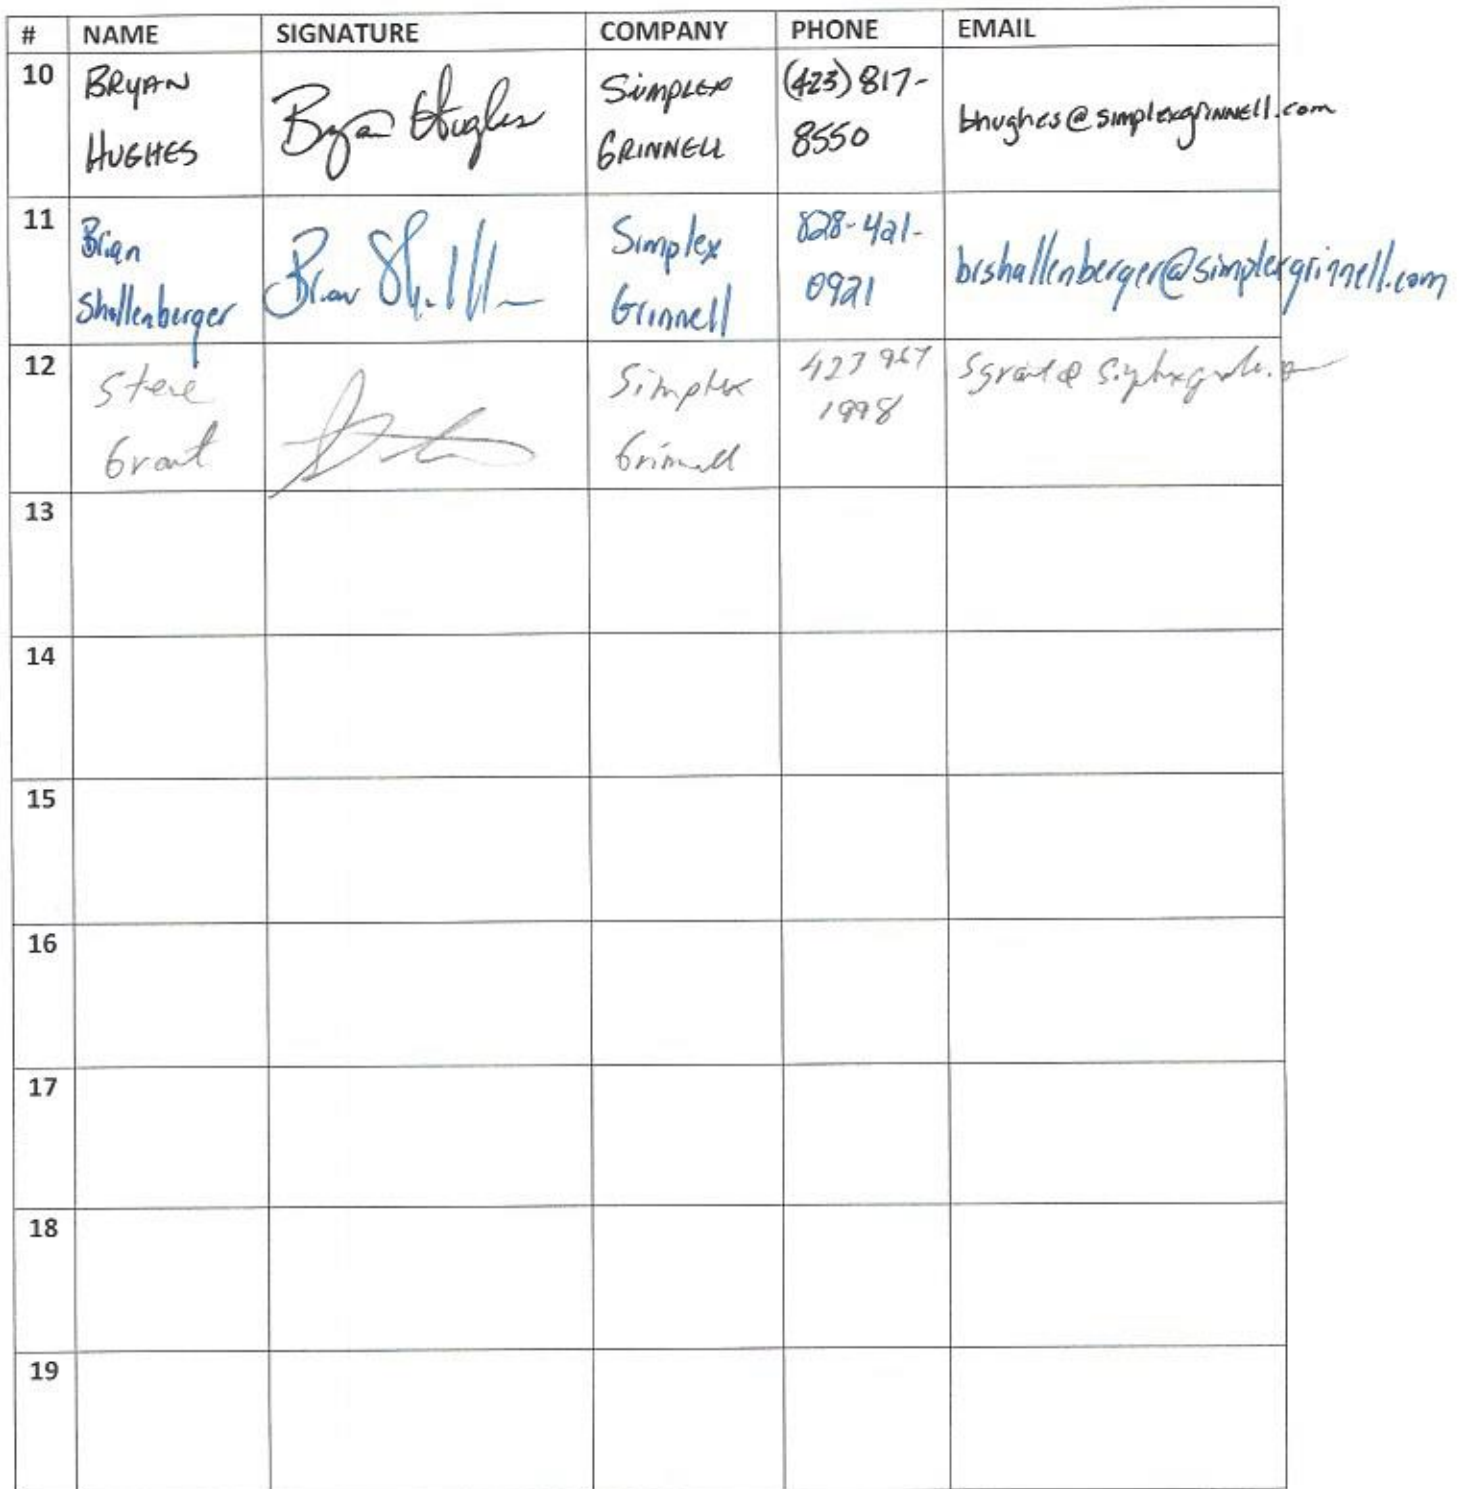 # NAME SIGNATURE COMPANY PHONE EMAIL
10 BRYAN HUGHES Bryan Hughes SIMPLEX GRINNELL (423) 817-8550 bhughes@simplexgrinnell.com
11 Brian Shallenberger Brian Simplex Grinnell 828-421-0921 brshallenberger@simplexgrinnell.com
12 Steve Grant Simplex Grinnell 423 967 1998
13
14
15
16
17
18
19